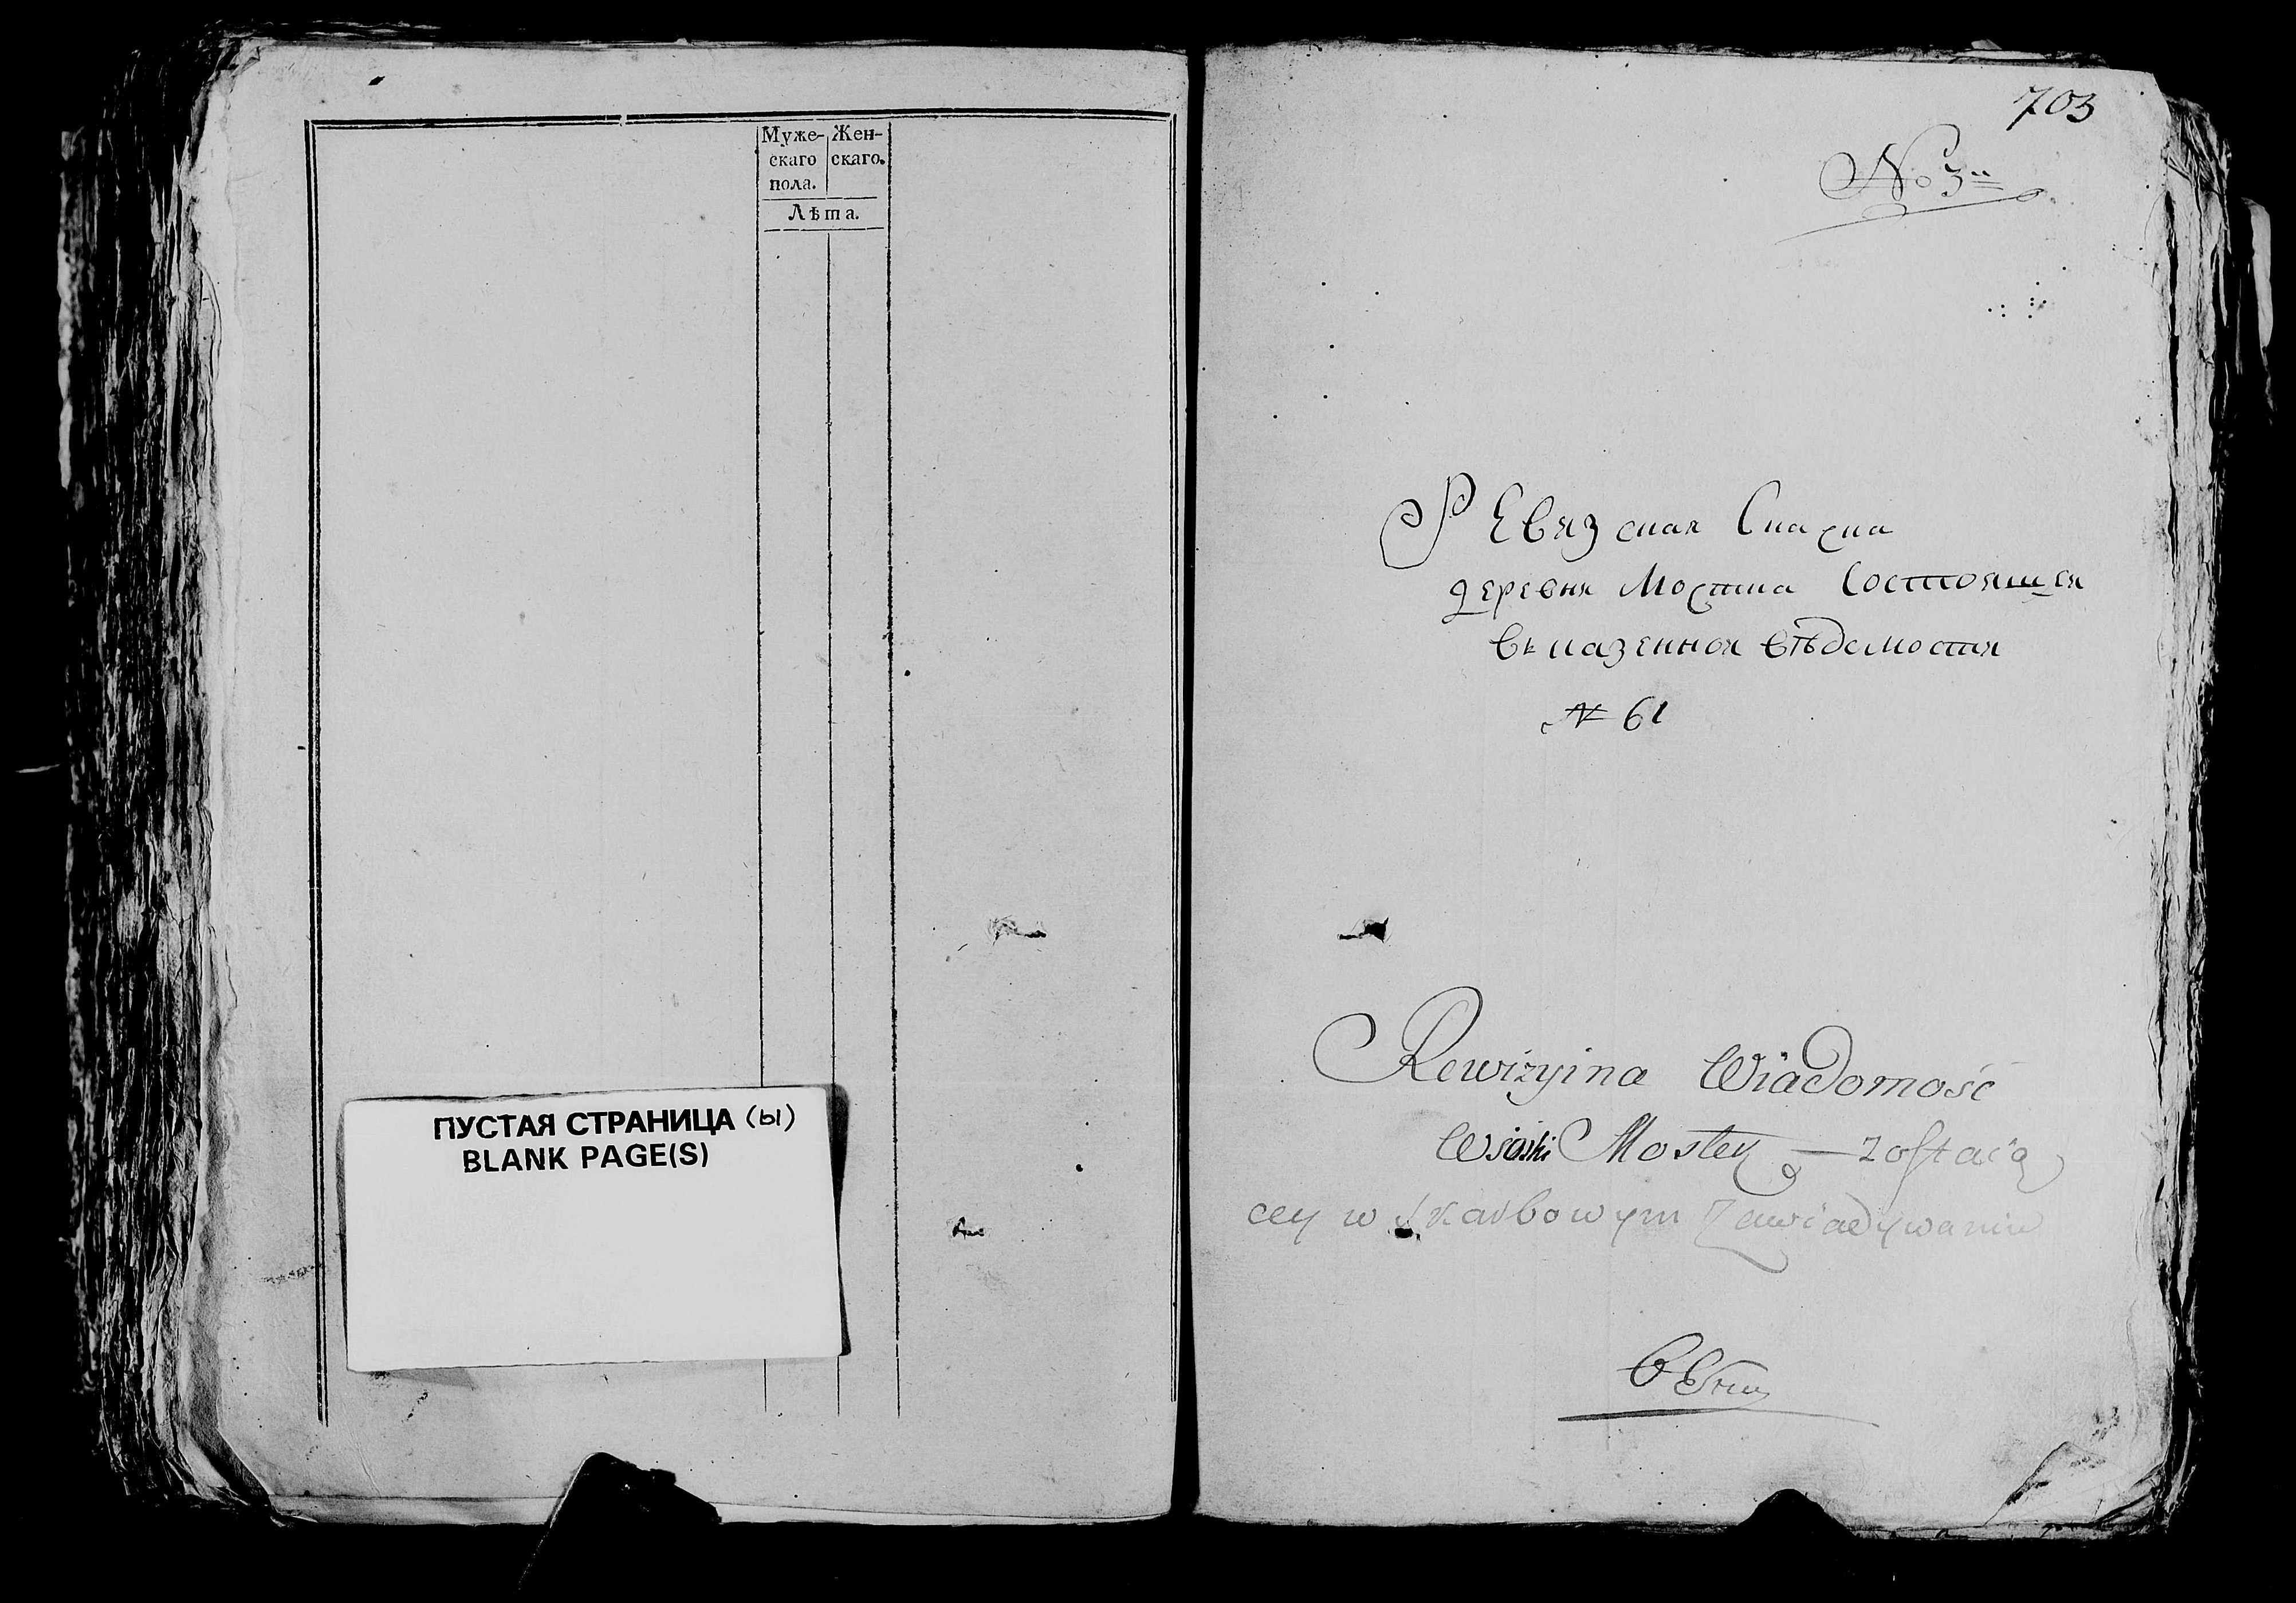 Муже- Жен-
скаго скаго.
пола.
Лѣта.
ПУСТАЯ СТРАНИЦА (ы)
BLANK PAGE(S)
703
No 3
Ревизская Сказка
деревни Мостка Состоящей
въ казенной вѣдомости
№ 61
Rewizyina Wiadomość
Wioski Mostek zostaią
cey w skarbowym Zawiadywaniu